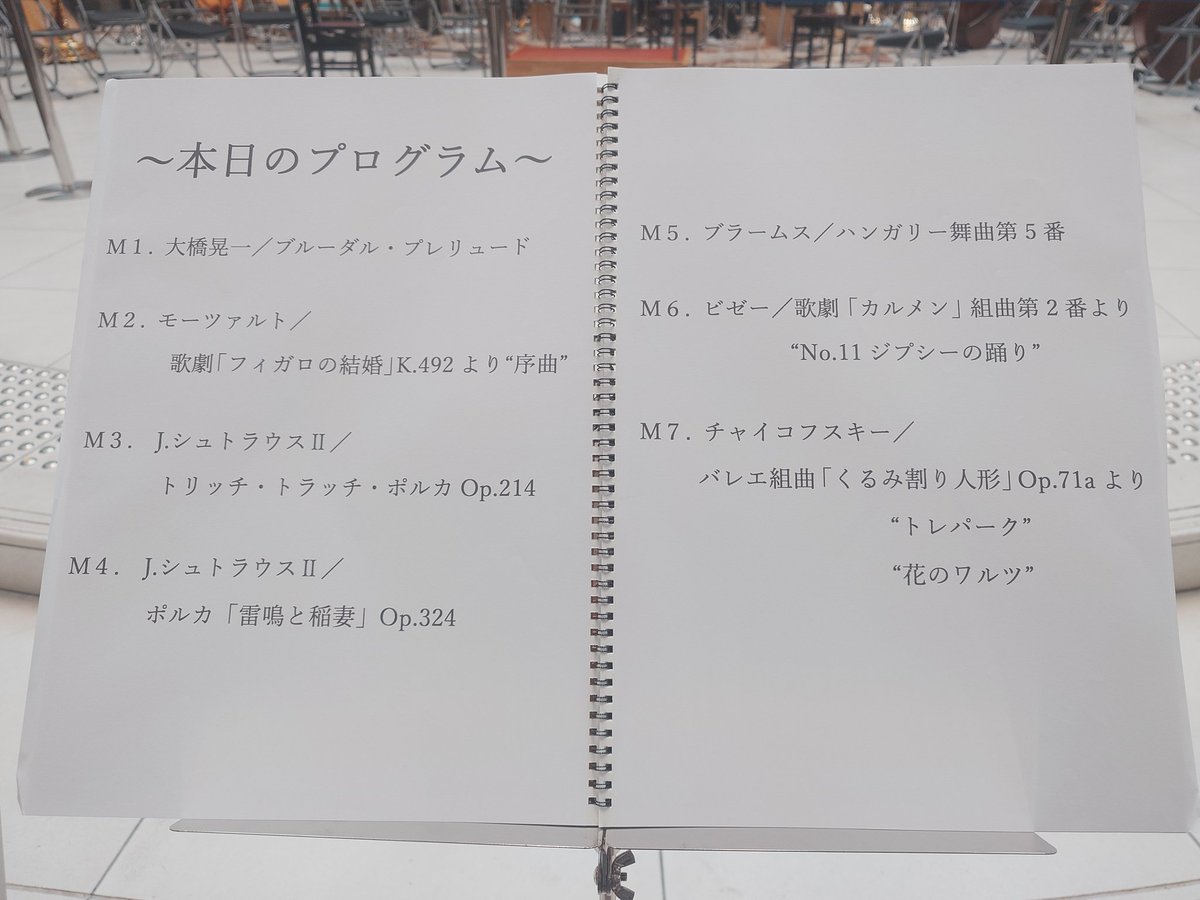 ～本日のプログラム～
M1. 大橋晃一／ブルーダル・プレリュード
M2. モーツァルト／
歌劇「フィガロの結婚」K.492 より“序曲”
M3. J.シュトラウスⅡ／
トリッチ・トラッチ・ポルカ Op.214
M4. J.シュトラウスⅡ／
ポルカ「雷鳴と稲妻」Op.324
M5. ブラームス／ハンガリー舞曲第5番
M6. ビゼー／歌劇「カルメン」組曲第2番より
“No.11 ジプシーの踊り”
M7. チャイコフスキー／
バレエ組曲「くるみ割り人形」Op.71a より
“トレパーク”
“花のワルツ”